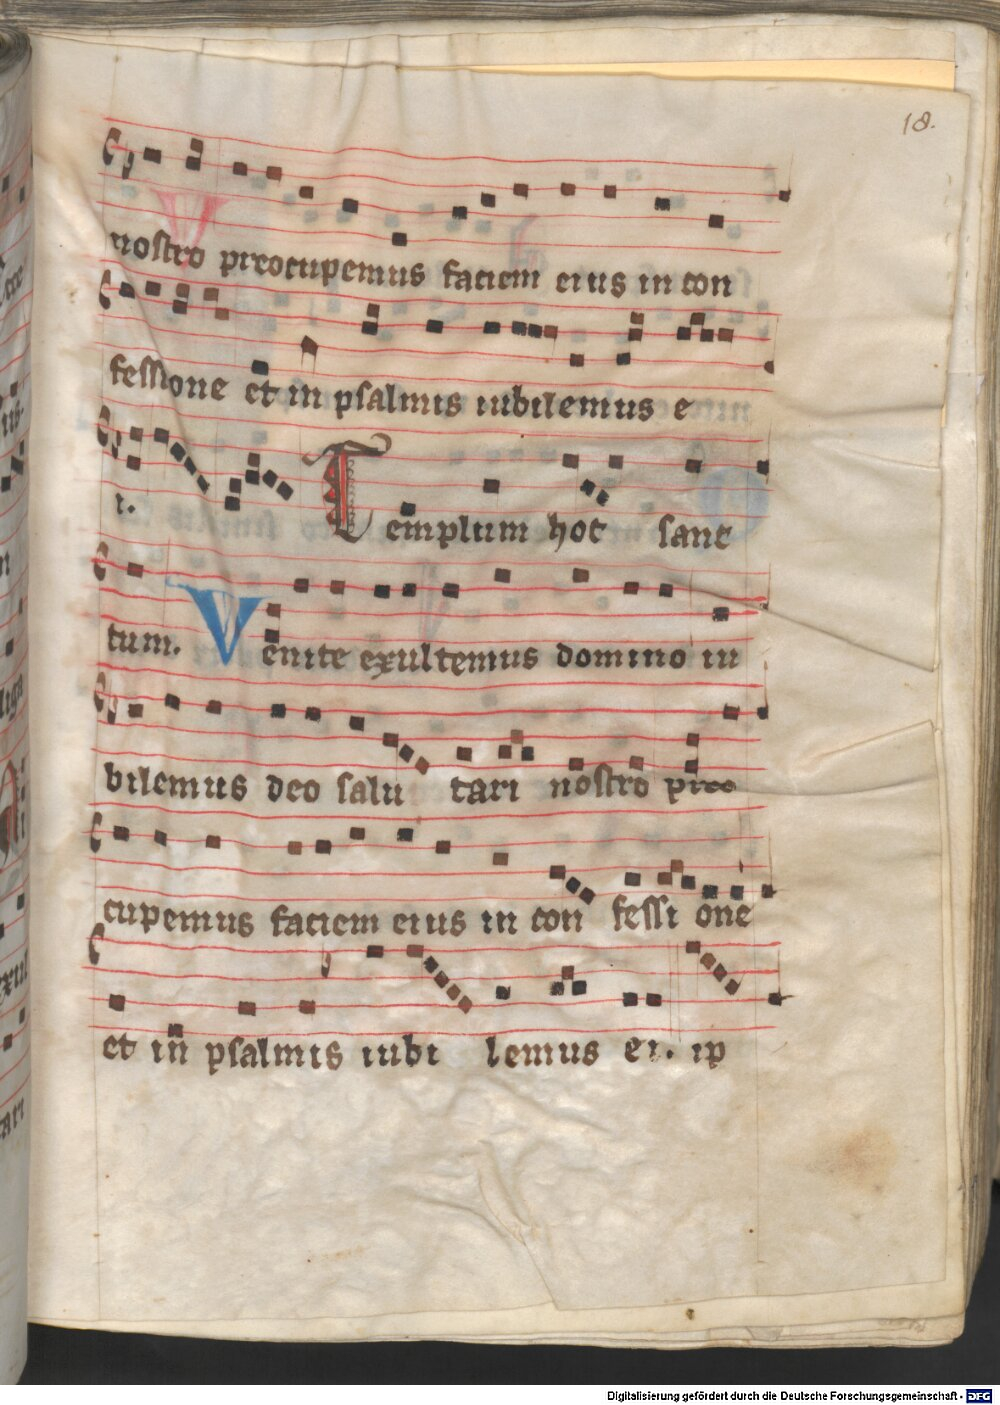 18.
nostro preocupemus faciem eius in con
fessione et in psalmis iubilemus e
i. Templum hoc sanc
tum. Venite exultemus domino iu
bilemus deo salu tari nostro preo
cupemus faciem eius in con fessi one
et in psalmis iubi lemus ei. ip
Digitalisierung gefördert durch die Deutsche Forschungsgemeinschaft - DFG